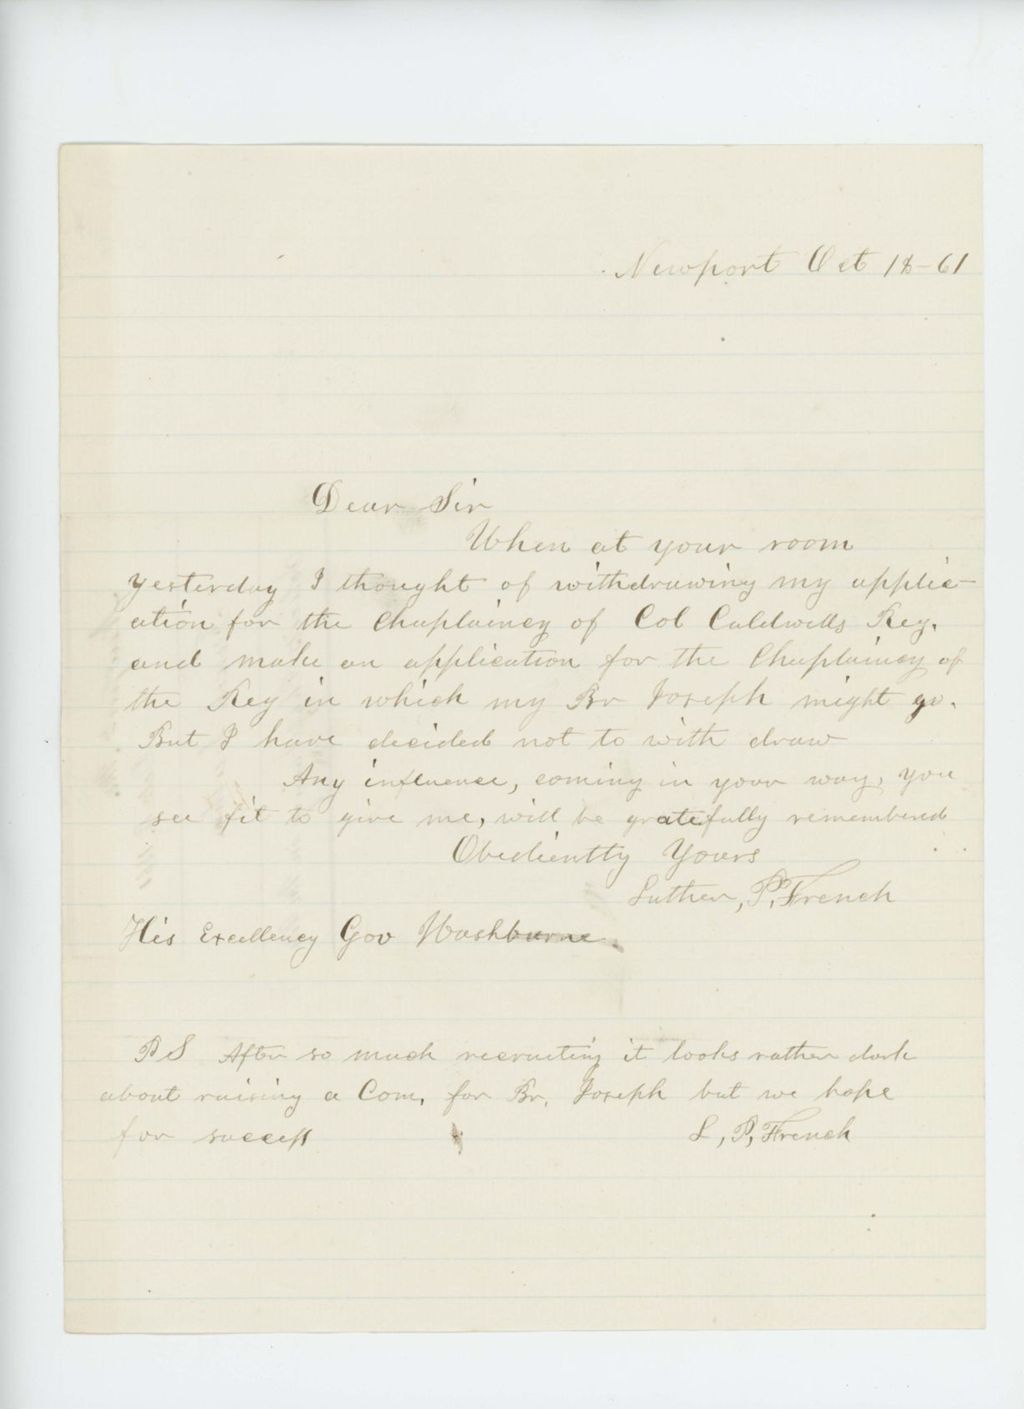 Newport Oct 18-61
Dear Sir
When at your room
yesterday I thought of withdrawing my applic-
ation for the Chaplaincy of Col Caldwells Reg.
and make an application for the Chaplaincy of
the Reg in which my Br Joseph might go.
But I have decided not to with draw
Any influence, coming in your way, you
see fit to give me, will be gratefully remembered
Obediently Yours
Luther, P, French
His Excellency Gov Washburne.
PS After so much recruiting it looks rather dark
about raising a Com, for Br, Joseph but we hope
for success
L, P, French